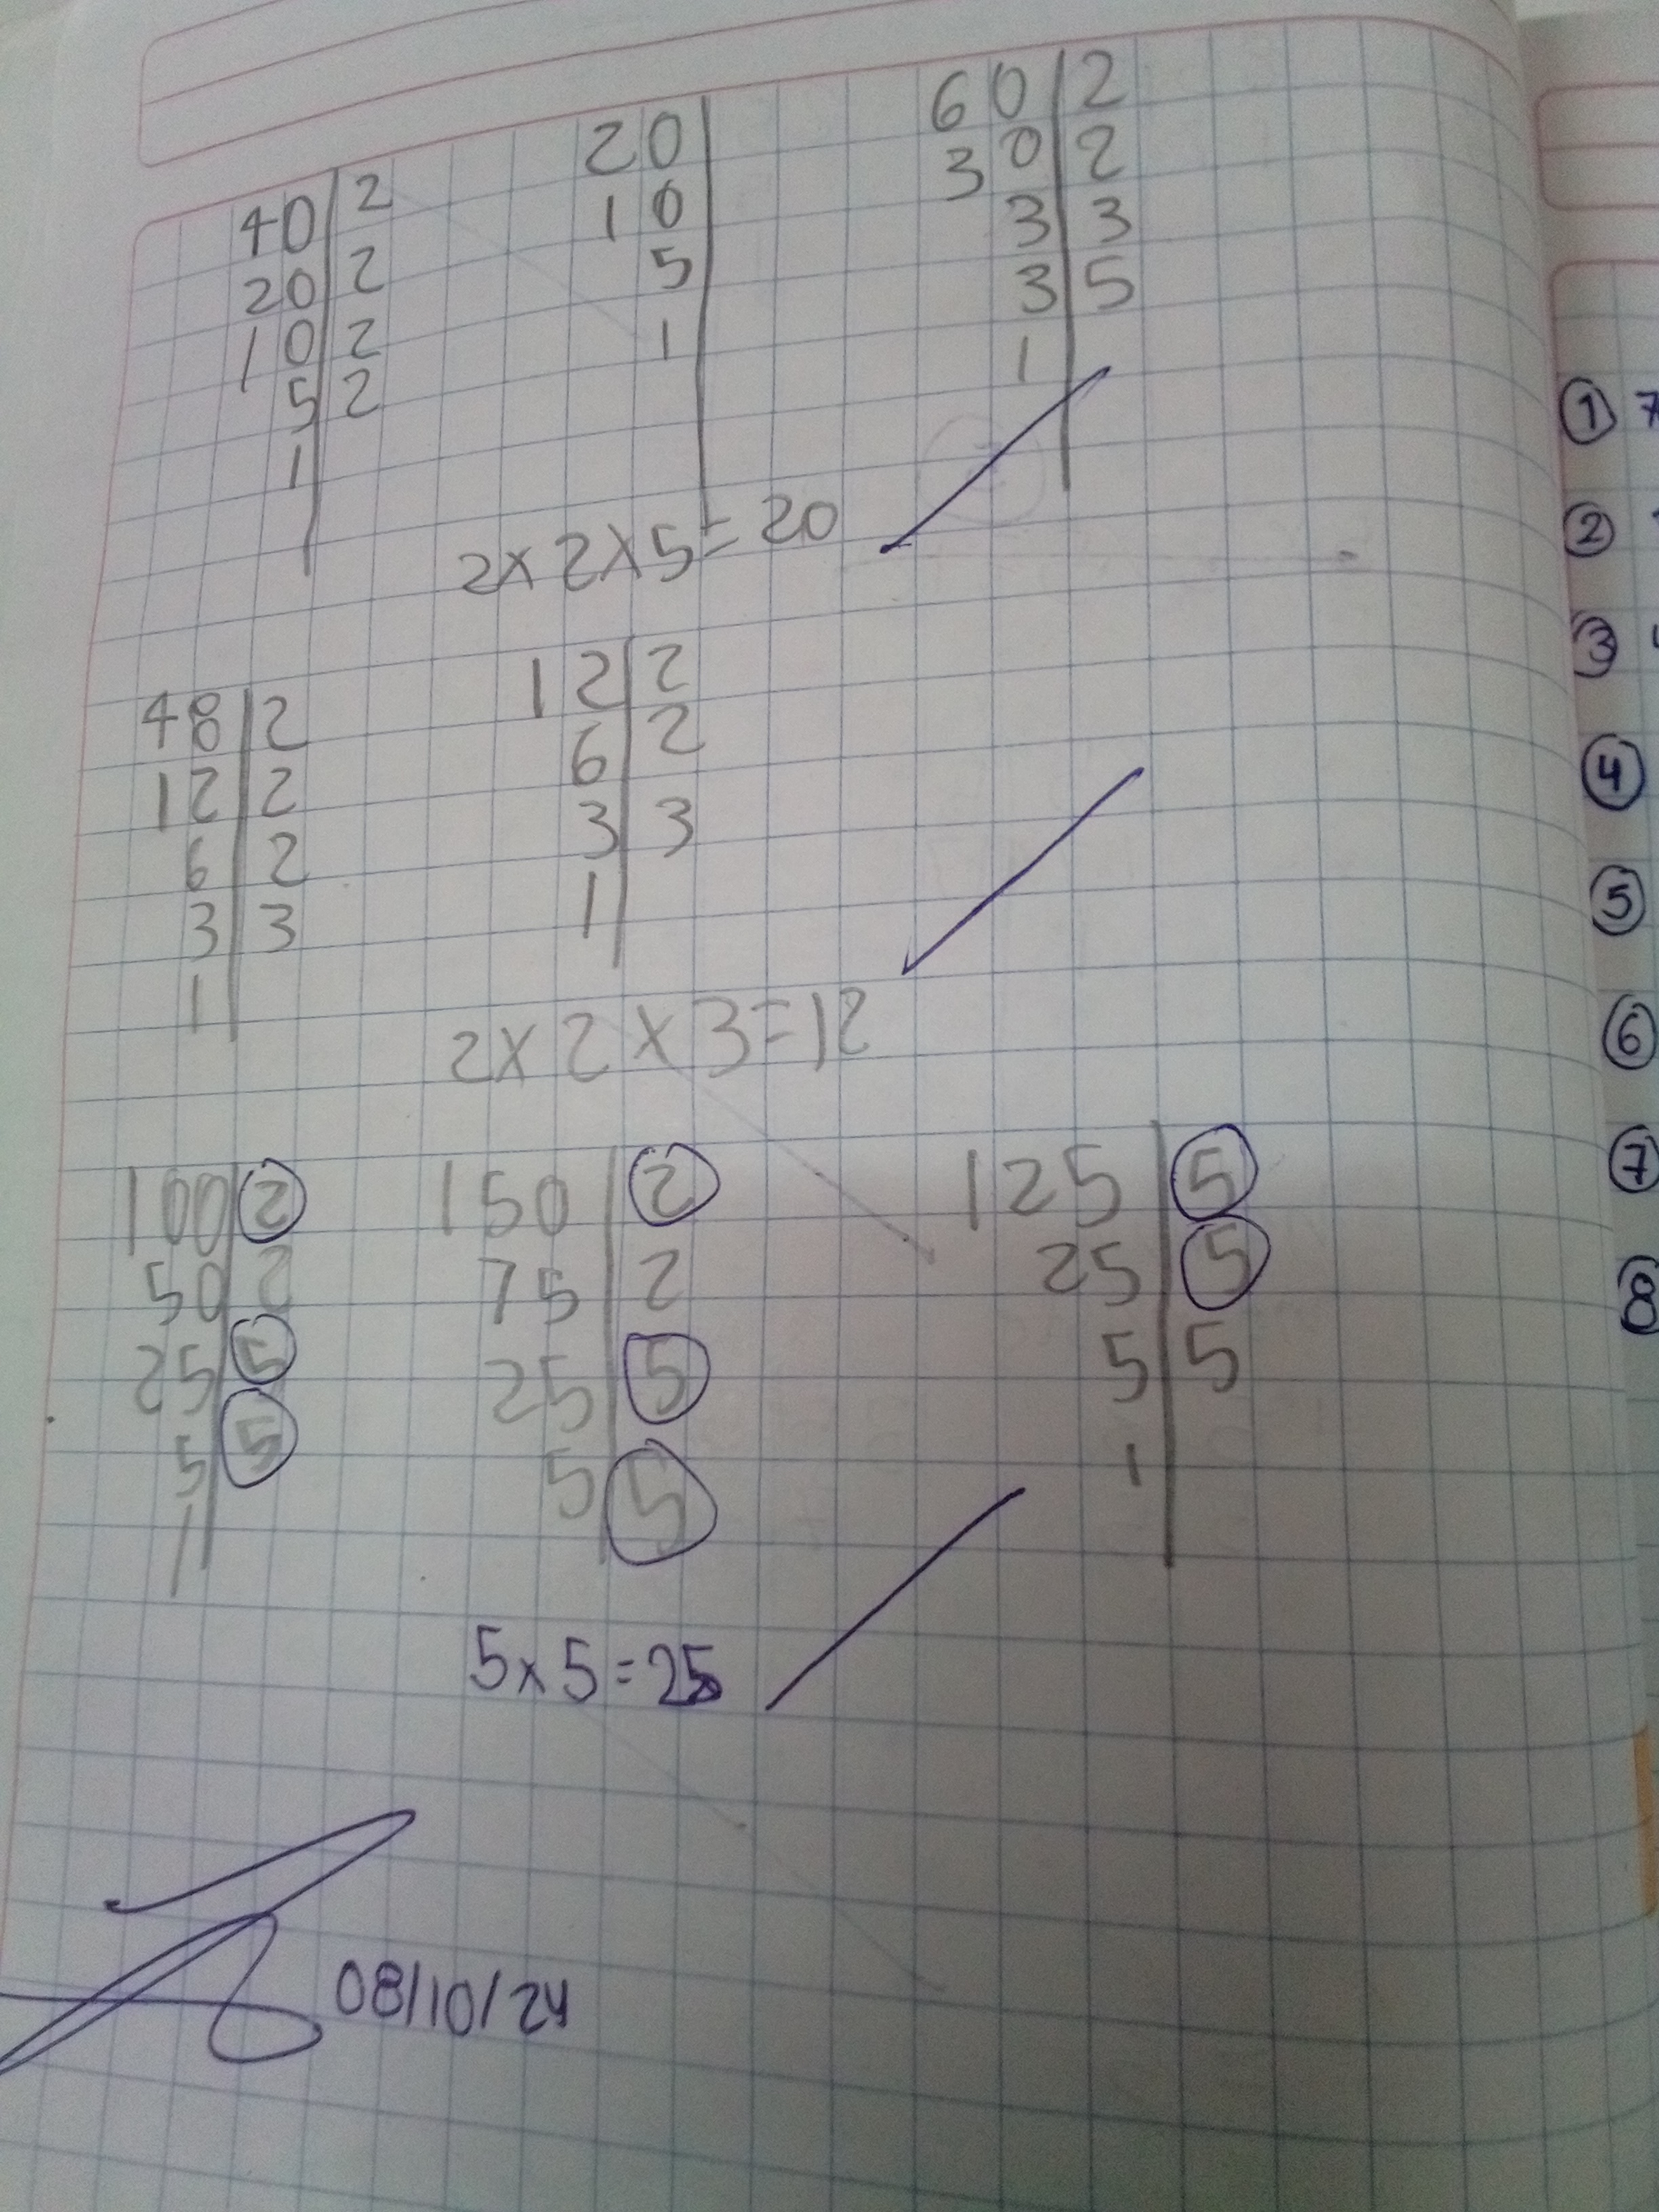 40 2
20 2
10 2
5 2
1
20
10
5
1
60 2
30 2
3 3
3 5
1
2x2x5=20
48 2
12 2
6 2
3 3
1
12 2
6 2
3 3
1
2x2x3=12
100 2
50 2
25 5
5 5
1
150 2
75 2
25 5
5 5
125 5
25 5
5 5
1
5x5=25
08/10/24
1 7
2
3
4
5
6
7
8